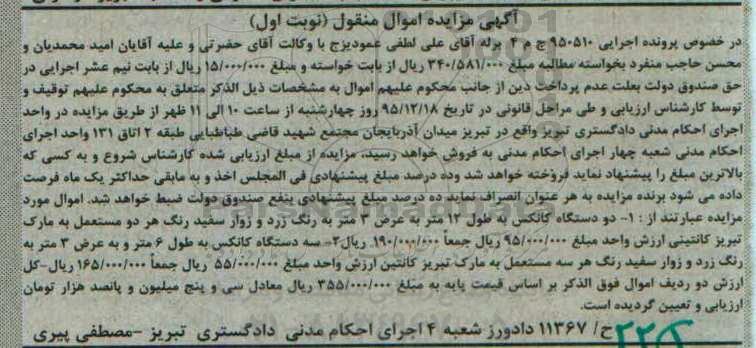 آگهی مزایده اموال منقول (نوبت اول)
در خصوص پرونده اجرایی ۹۵۰۵۱۰ ج م ۴ برله آقای علی لطفی عمودیزج با وکالت آقای حضرتی و علیه آقایان امید محمدیان و
محسن حاجب منفرد بخواسته مطالبه مبلغ ۳۴۰/۵۸۱/۰۰۰ ریال از بابت خواسته و مبلغ ۱۵/۰۰۰/۰۰۰ ریال از بابت نیم عشر اجرایی در
حق صندوق دولت بعلت عدم پرداخت دین از جانب محکوم علیهم اموال به مشخصات ذیل الذکر متعلق به محکوم علیهم توقیف و
توسط کارشناس ارزیابی و طی مراحل قانونی در تاریخ ۹۵/۱۲/۱۸ روز چهارشنبه از ساعت ۱۰ الی ۱۱ ظهر از طریق مزایده در واحد
اجرای احکام مدنی دادگستری تبریز واقع در تبریز میدان آذربایجان مجتمع شهید قاضی طباطبایی طبقه ۲ اتاق ۱۳۱ واحد اجرای
احکام مدنی شعبه چهار اجرای احکام مدنی به فروش خواهد رسید. مزایده از مبلغ ارزیابی شده کارشناس شروع و به کسی که
بالاترین مبلغ را پیشنهاد نماید فروخته خواهد شد وده درصد مبلغ پیشنهادی فی المجلس اخذ و به مابقی حداکثر یک ماه فرصت
داده می شود برنده مزایده به هر عنوان انصراف نماید ده درصد مبلغ پیشنهادی بنفع صندوق دولت ضبط خواهد شد. اموال مورد
مزایده عبارتند از : ۱- دو دستگاه کانکس به طول ۱۲ متر به عرض ۳ متر به رنگ زرد و زوار سفید رنگ هر دو مستعمل به مارک
تبریز کانتینی ارزش واحد مبلغ ۹۵/۰۰۰/۰۰۰ ریال جمعاً ۱۹۰/۰۰۰/۰۰۰ ریال۲- سه دستگاه کانکس به طول ۶ متر و به عرض ۳ متر به
رنگ زرد و زوار سفید رنگ هر سه مستعمل به مارک تبریز کانتین ارزش واحد مبلغ ۵۵/۰۰۰/۰۰۰ ریال جمعاً ۱۶۵/۰۰۰/۰۰۰ ریال-کل
ارزش دو ردیف اموال فوق الذکر بر اساس قیمت پایه به مبلغ ۳۵۵/۰۰۰/۰۰۰ ریال معادل سی و پنج میلیون و پانصد هزار تومان
ارزیابی و تعیین گردیده است.
ح/ ۱۱۳۶۷ دادورز شعبه ۴ اجرای احکام مدنی دادگستری تبریز -مصطفی پیری